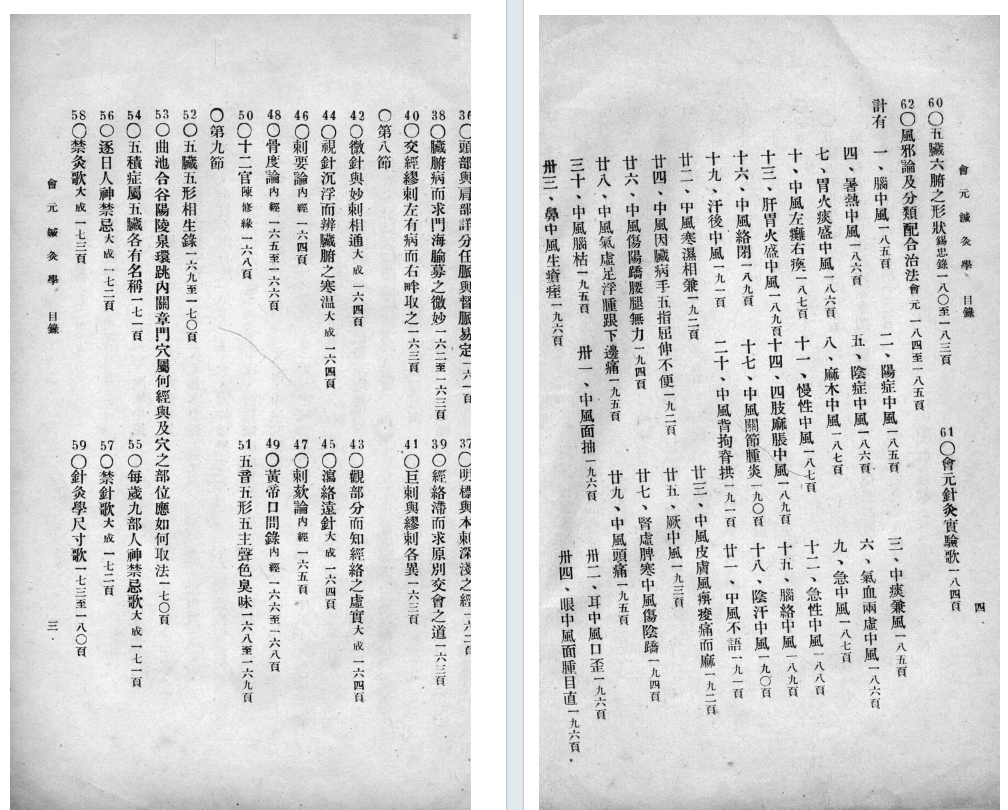 36〇頭部與肩部詳分任脈與督脈易定一六一頁
37〇明標與本刺深淺之經一六二頁
38〇臟腑病而求門海腧募之微妙一六二至一六三頁
39〇經絡滯而求原別交會之道一六三頁
40〇交經繆刺左有病而右畔取之一六三頁
41〇巨刺與繆刺各異一六三頁
〇第八節
42〇微針與妙刺相通大成一六四頁
43〇觀部分而知經絡之虛實大成一六四頁
44〇視針沉浮而辨臟腑之寒温大成一六四頁
45〇瀉絡遠針大成一六四頁
46〇刺要論內經一六四頁
47〇刺欬論內經一六五頁
48〇骨度論內經一六五至一六六頁
49〇黃帝口問錄內經一六六至一六八頁
50〇十二官陳修緣一六八頁
51〇五音五形五主聲色臭味一六八至一六九頁
〇第九節
52〇五臟五形相生錄一六九至一七〇頁
53〇曲池合谷陽陵泉環跳內關章門穴屬何經與及穴之部位應如何取法一七〇頁
54〇五積症屬五臟各有名稱一七一頁
55〇每歲九部人神禁忌歌大成一七一頁
56〇逐日人神禁忌大成一七二頁
57〇禁針歌大成一七二頁
58〇禁灸歌大成一七三頁
59〇針灸學尺寸歌一七三至一八〇頁
會元鍼灸學 目錄 三
會元鍼灸學 目錄 四
60〇五臟六腑之形狀錫忠錄一八〇至一八三頁
61〇會元針灸實驗歌一八四頁
62〇風邪論及分類配合治法會元一八四至一八五頁
計有 一、腦中風一八五頁 二、陽症中風一八五頁 三、中痰兼風一八五頁
四、暑熱中風一八六頁 五、陰症中風一八六頁 六、氣血兩虛中風一八六頁
七、胃火痰盛中風一八六頁 八、麻木中風一八七頁 九、急中風一八七頁
十、中風左癱右瘓一八七頁 十一、慢性中風一八七頁 十二、急性中風一八八頁
十三、肝胃火盛中風一八九頁 十四、四肢麻脹中風一八九頁 十五、腦絡中風一八九頁
十六、中風絡閉一八九頁 十七、中風關節腫炎一九〇頁 十八、陰汗中風一九〇頁
十九、汗後中風一九一頁 二十、中風背拘脊拱一九一頁 廿一、中風不語一九一頁
廿二、中風寒濕相兼一九二頁 廿三、中風皮膚風痹痠痛而麻一九二頁
廿四、中風因臟病手五指屈伸不便一九二頁 廿五、厥中風一九三頁
廿六、中風傷陽蹻腰腿無力一九四頁 廿七、腎虛脾寒中風傷陰蹻一九四頁
廿八、中風氣虛足浮腫跟下邊痛一九五頁 廿九、中風頭痛一九五頁
三十、中風腦枯一九五頁 卅一、中風面抽一九六頁 卅二、耳中風口歪一九六頁
卅三、鼻中風生瘡痓一九六頁 卅四、眼中風面腫目直一九六頁